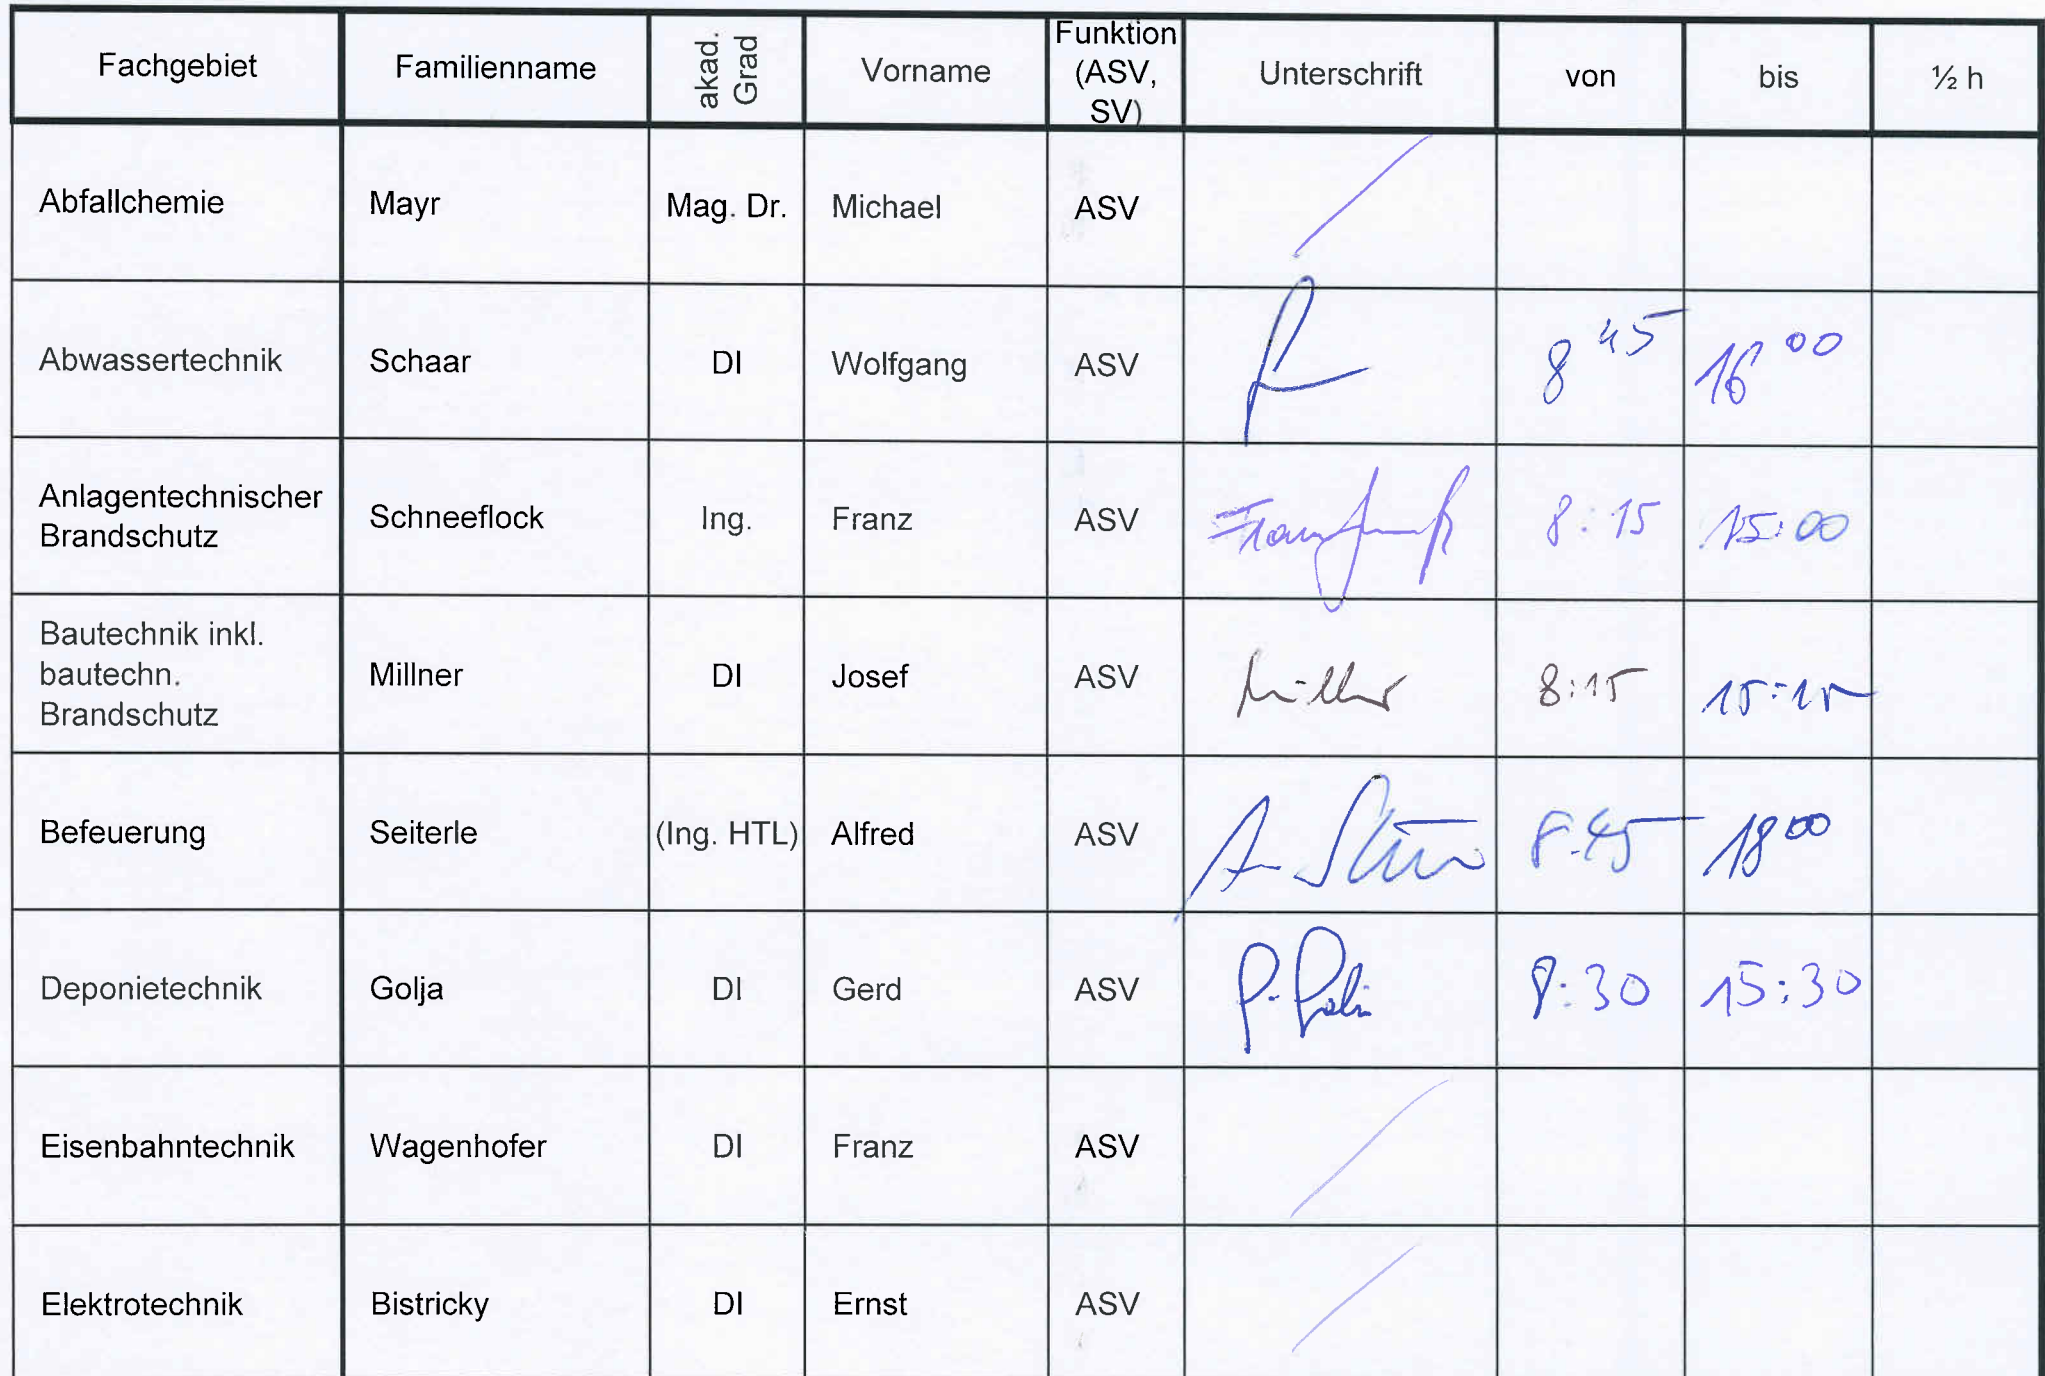 Fachgebiet Familienname akad. Grad Vorname Funktion (ASV, SV) Unterschrift von bis ½ h
Abfallchemie Mayr Mag. Dr. Michael ASV
Abwassertechnik Schaar DI Wolfgang ASV 8 45 16 00
Anlagentechnischer Brandschutz Schneeflock Ing. Franz ASV 8:15 15:00
Bautechnik inkl. bautechn. Brandschutz Millner DI Josef ASV 8:15 15:15
Befeuerung Seiterle (Ing. HTL) Alfred ASV 8:45 18 00
Deponietechnik Golja DI Gerd ASV 8:30 15:30
Eisenbahntechnik Wagenhofer DI Franz ASV
Elektrotechnik Bistricky DI Ernst ASV